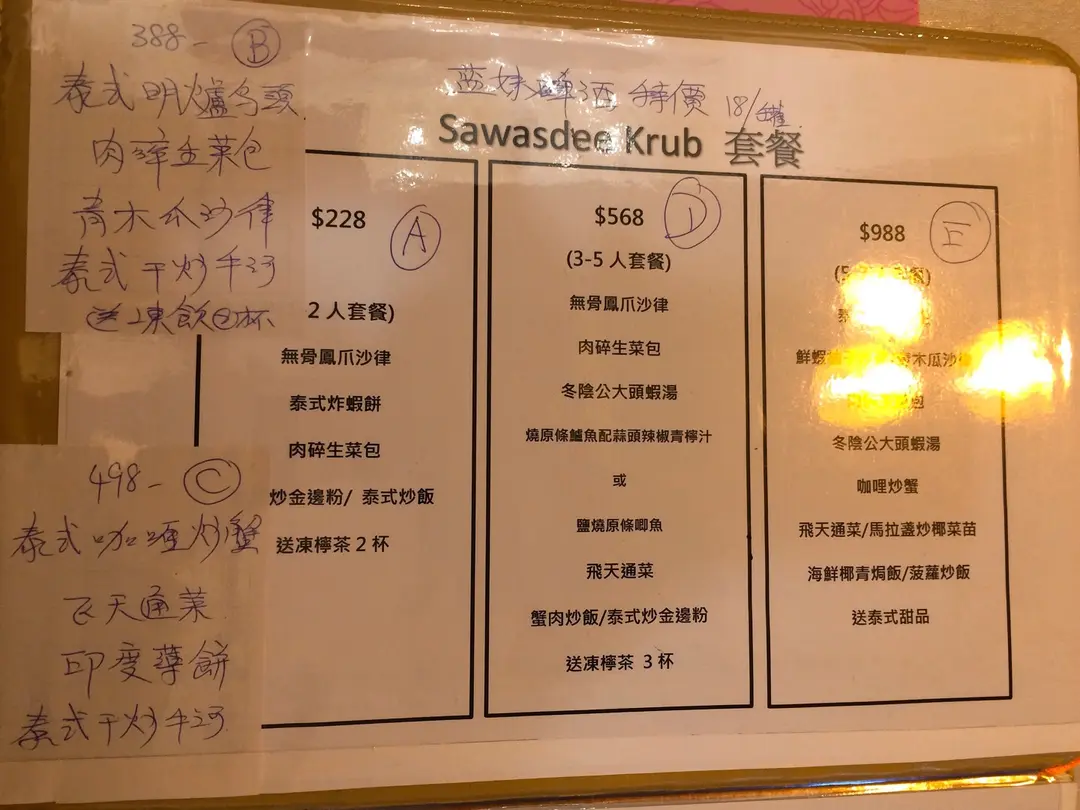 388- B
泰式明爐烏頭
肉碎生菜包
青木瓜沙律
泰式干炒牛河
送凍飲 杯
蓝妹啤酒 特價 18/罐
Sawasdee Krub 套餐
$228 A
2 人套餐)
無骨鳳爪沙律
泰式炸蝦餅
肉碎生菜包
炒金邊粉/ 泰式炒飯
送凍檸茶 2 杯
498- C
泰式咖喱炒蟹
飞天通菜
印度薄餅
泰式干炒牛河
$568 D
(3-5 人套餐)
無骨鳳爪沙律
肉碎生菜包
冬陰公大頭蝦湯
燒原條鱸魚配蒜頭辣椒青檸汁
或
鹽燒原條唧魚
飛天通菜
蟹肉炒飯/泰式炒金邊粉
送凍檸茶 3 杯
$988 E
鮮蝦 木瓜沙
包
冬陰公大頭蝦湯
咖哩炒蟹
飛天通菜/馬拉盞炒椰菜苗
海鮮椰青焗飯/菠蘿炒飯
送泰式甜品